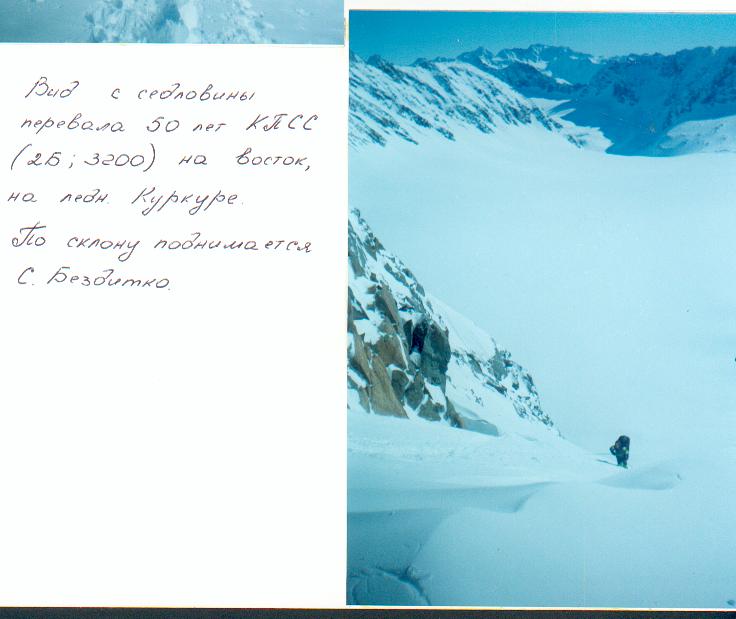 Вид с седловины
перевала 50 лет КПСС
(2Б; 3200) на восток,
на ледн. Куркуре.
По склону поднимается
С. Бездитко.